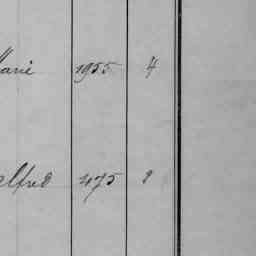 Marie 1955 4
Alfred 475 2